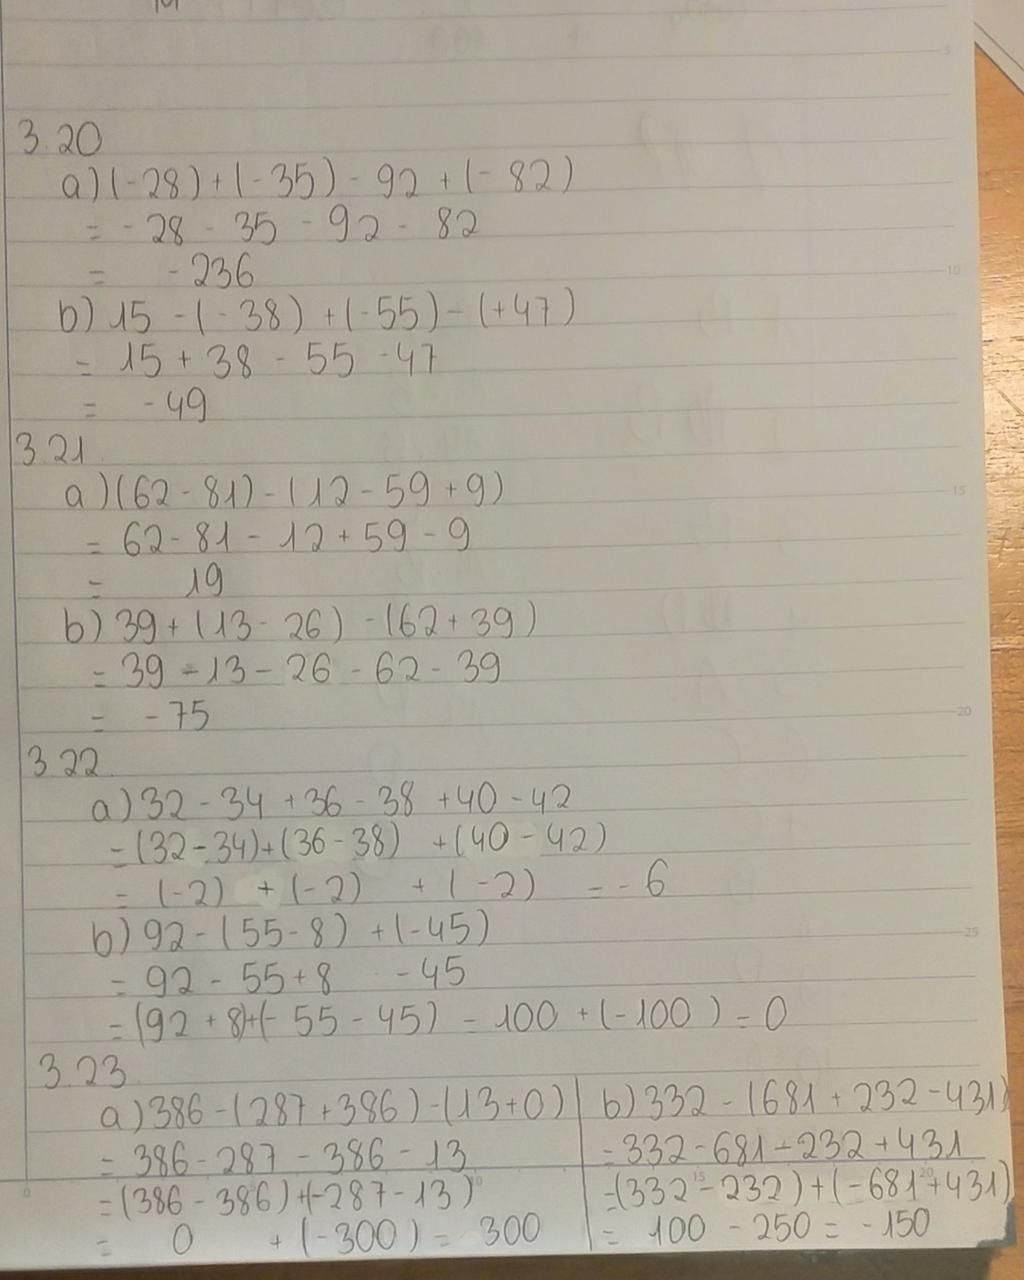 3.20
a) (-28) + (-35) - 92 + (- 82)
= - 28 - 35 - 92 - 82
= -236
b) 15 - (- 38) + (-55) - (+47)
= 15 + 38 - 55 - 47
= - 49
3.21
a) (62 - 81) - (12 - 59 + 9)
= 62 - 81 - 12 + 59 - 9
= 19
b) 39 + (13 - 26) - (62 + 39)
= 39 - 13 - 26 - 62 - 39
= - 75
3.22
a) 32 - 34 + 36 - 38 + 40 - 42
= (32 - 34) + (36 - 38) + (40 - 42)
= (-2) + (-2) + (-2) = - 6
b) 92 - (55 - 8) + (-45)
= 92 - 55 + 8 - 45
= (92 + 8) + (- 55 - 45) = 100 + (-100) = 0
3.23
a) 386 - (287 + 386) - (13 + 0)
= 386 - 287 - 386 - 13
= (386 - 386) + (-287 - 13)
= 0 + (-300) = 300
b) 332 - (681 + 232 - 431)
= 332 - 681 - 232 + 431
= (332 - 232) + (-681 + 431)
= 100 - 250 = -150
5
10
15
20
25
0
15
20